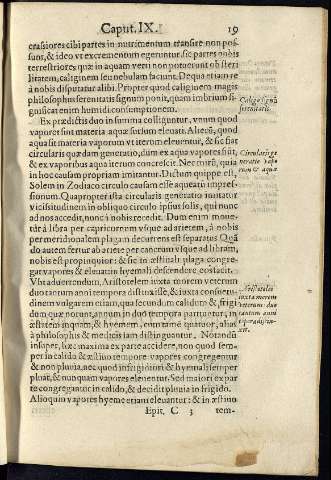 Caput. IX. 19
crassiores cibi partes in nutrimentum transire non pos-
sunt, & ideo vt excrementum egeruntur sic partes nobis
terrestriores quæ in aquam verti non potuerunt ob steri
litatem, caliginem seu nebulam faciunt. Dequa etiam re
à nobis disputatur alibi. Propter quod caliginem magis
philosophus serenitatis signum ponit, quam imbrium si-
gnificationem. hinc constat anemi.
Caligo signũ
serenitatis.
Ex prædictis duo in summa colliguntur, vnum quod
vapores sint materia aquæ sursum eleuati. Alterũ, quod
aqua sit materia vaporum vt iterum eleuetur, & sic fiat
circularis quædam generatio, dum ex aqua vapores fiũt,
& ex vaporibus aqua iterum concrescit. Nec mirũ, quia
in hoc causam propriam imitantur. Dictum quippe est,
Solem in Zodiaco circulo causam esse aquearũ impres-
sionum. Quapropter ista circularis generatio imitatur
vicissitudinem in obliquo circulo ipsius solis, qui nunc
ad nos accedit, nunc à nobis recedit. Dum enim moue-
tur à libra per capricornem vsque ad arietem, à nobis
per meridionalem plagam decurrens est separatus Quã
do autem fertur ab ariete per cancrum vsque ad libram,
nobis est propinquior: & sic in æstiuali plaga congre-
gat vapores & eleuat in hyemali descendere eos facit.
Circularis ge
neratio vapo
rum & aquæ
Vbi aduerendum, Aristotelem iuxta morem veterum
duo tantum anni tempora distinxisse, & iuxta consuetu-
dinem vulgarem etiam, qua secundum calidum & frigi-
dum quæ norunt, annum in duo tempora partiuntur, in
æstatem inquam, & hyemem, cum tamẽ quatuor, alias
à philosophis & medicis iam distinguantur. Notandũ
insuper, hæc maxima ex parte accidere, non quod sem-
per in calido & æstiuo tempore vapores congregentur
& non pluuia, nec quod in frigidiori & hyemali semper
pluat, & nunquam vapores eleuentur. Sed maiori ex par
te congregantur in calido, & decidit pluuia in frigido.
Alioqui in vapores hyeme etiam eleuantur: & in æstiuo
Aristoteles
iuxta morem
veterum duo
tantum anni
tempora distin-
xit.
Epit. C 3 tem-